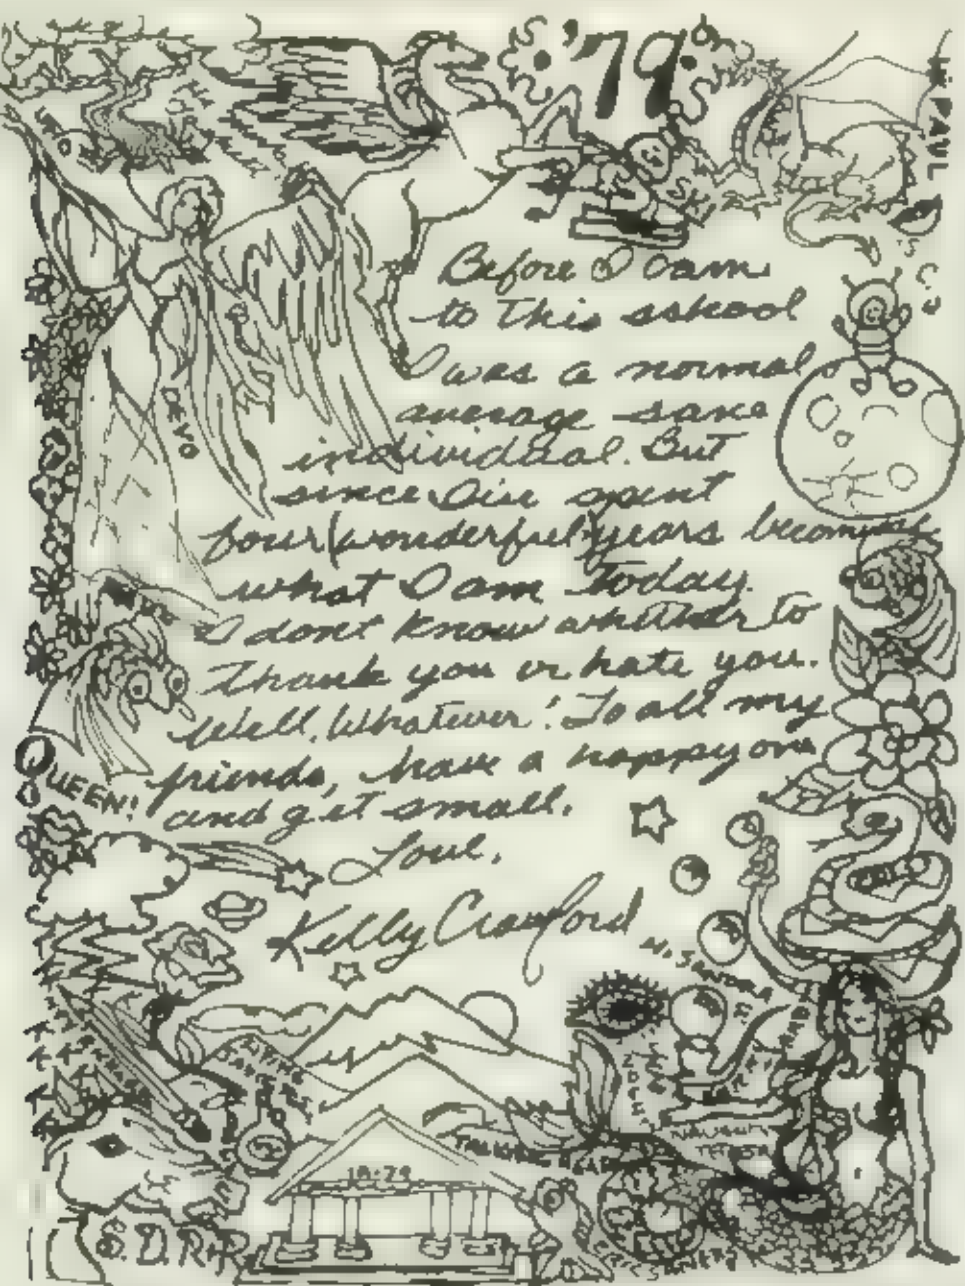 '79
HI PAUL
Before I cam
to this sshool
I was a normal
average sane
individual. But
since I'av spent
four (wonderful) years becoming
what I am today.
I dont know whether to
thank you or hate you.
Well, Whatever! To all my
friends, have a happy one
and get small.
Love,
Kelly Crawford
DEVO
QUEEN!
HI SANDRA
KANSAS
DANGERS
TALKING HEADS
NAUGHTY
18.79
S.D.R.H.